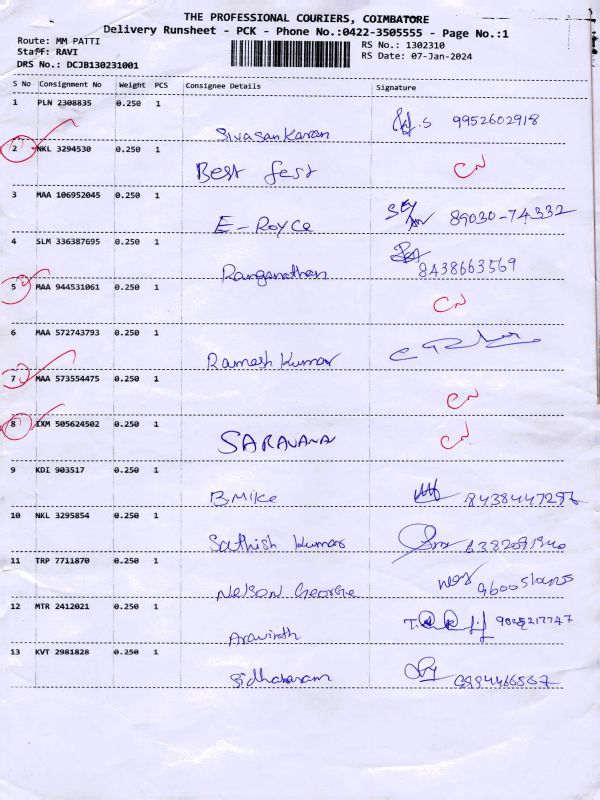 THE PROFESSIONAL COURIERS, COIMBATORE
Delivery Runsheet - PCK - Phone No.:0422-3505555 - Page No.:1
Route: MM PATTI RS No.: 1302310
Staff: RAVI RS Date: 07-Jan-2024
DRS No.: DCJB130231001
S No Consignment No Weight PCS Consignee Details Signature
1 PLN 2308835 0.250 1
Sivasankaran 9952602918
2 NKL 3294530 0.250 1
Best fest CN
3 MAA 106952045 0.250 1
E-Royce 89030-74332
4 SLM 336387695 0.250 1
Ranganathan 8438663569
5 MAA 944531061 0.250 1
CN
6 MAA 572743793 0.250 1
Ramesh Kumar
7 MAA 573554475 0.250 1
CN
8 IXM 505624502 0.250 1
SARAVANA CN
9 KDI 903517 0.250 1
B.Mike 8438447296
10 NKL 3295854 0.250 1
Sathish Kumar
11 TRP 7711870 0.250 1
Nelson George
12 MTR 2412021 0.250 1
Aravinth
13 KVT 2981828 0.250 1
Sidhabaram